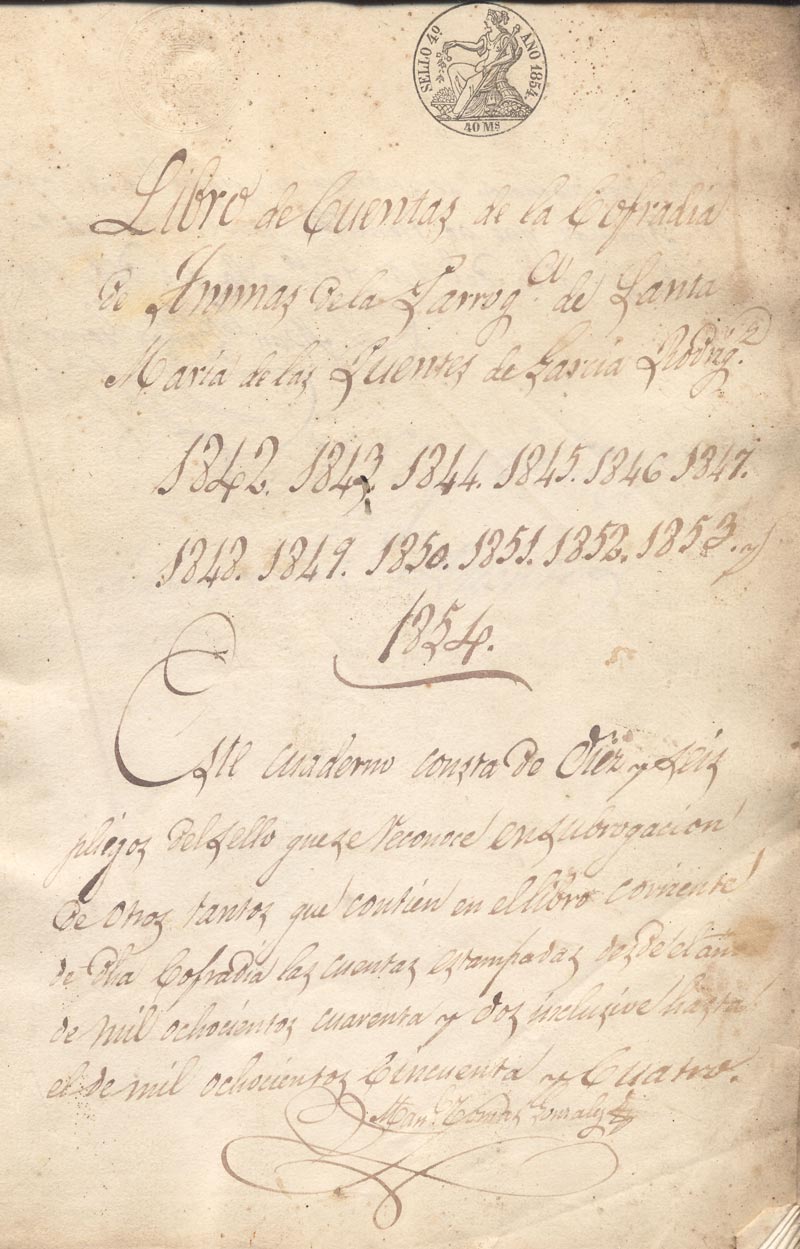 SELLO 4º AÑO 1854.
40 Mˢ
Libro de Cuentas de la Cofradía
de Animas de la Parroq.ᵃ de Santa
María de las Puentes de García Rodrig.ᶻ
1842. 1843. 1844. 1845. 1846 1847.
1848. 1849. 1850. 1851. 1852. 1853. y
1854.
Este cuaderno consta de diez y seis
pliegos del sello que se reconoce en subrogacion
de otros tantos que contien en el libro corriente
de dha Cofradía las cuentas estampadas desde el año
de mil ochocientos cuarenta y dos inclusive hasta
el de mil ochocientos Cincuenta y Cuatro.
Man.ˡ Tomás Gonzalez